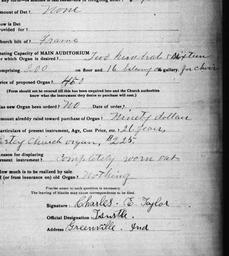 Amount of Debt None
How is Debt
provided for
Church built of Frame
Seating Capacity of MAIN AUDITORIUM Two hundred & sixteen
for which Organ is desired
comprising 200 on floor and 16 in gallery, for choir
Price of proposed Organ 450
(Form should not be returned till this has been completed and the Church authorities
know what the instrument they desire to purchase will cost.)
Has new Organ been ordered? No Date of order
Amount already raised toward purchase of Organ Ninety dollars
Particulars of present instrument, Age, Cost Price, etc. 26 years,
Estey Church organ, $225
Reason for displacing
present instrument? Completely worn out
How much is to be realized by sale
of (or from insurance on) old Organ? Nothing
Please answer to each question is necessary.
The leaving of blanks may cause correspondence to be filed.
Signature Charles E. Taylor
Official Designation Trustee
Address Greenville, Ind